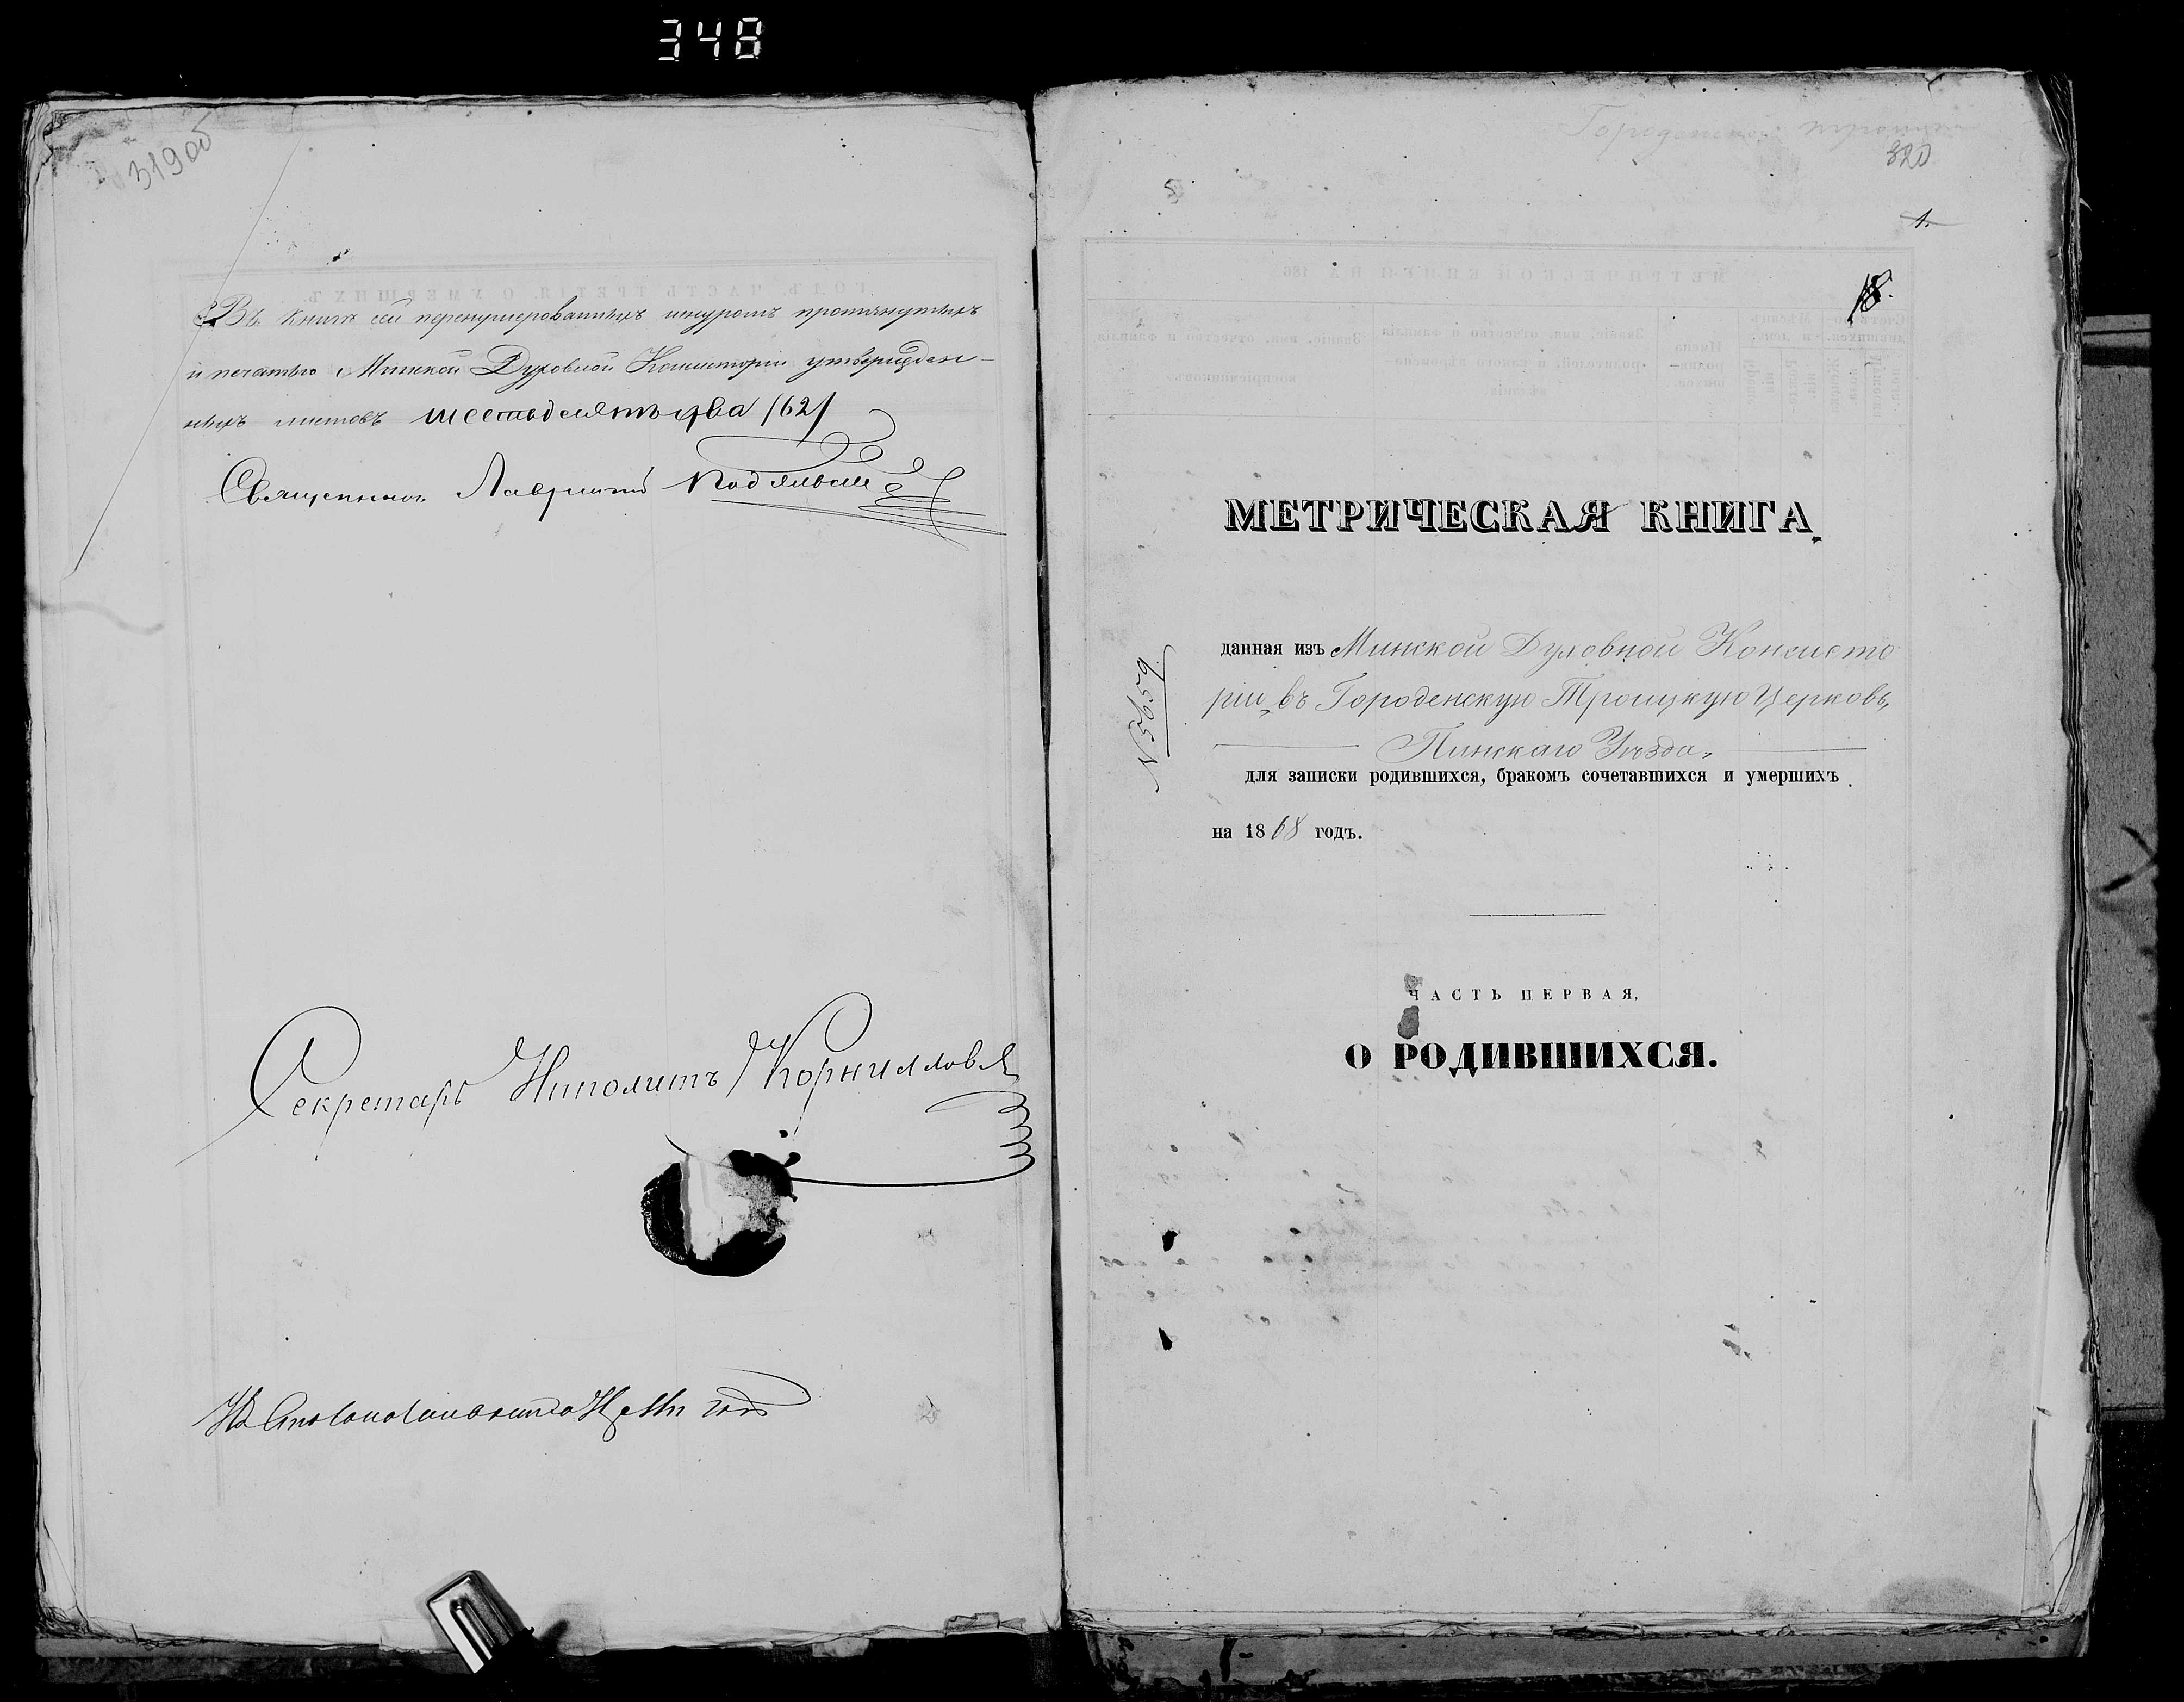 348
319 об
Въ книге сей перенумерованныхъ шнуромъ протянутыхъ
и печатью Минской Духовной Консисторіи утвержден-
ныхъ листовъ шестьдесятъ два /62/
Священникъ Лаврентій
Секретарь Иполитъ Корниловъ
Городенской Троицкой
320
5
1.
18.
МЕТРИЧЕСКАЯ КНИГА
данная изъ Минской Духовной Консисто
ріи въ Городенскую Троицкую Церковь,
Пинскаго Уѣзда,
N 5659
для записки родившихся, бракомъ сочетавшихся и умершихъ
на 1868 годъ.
ЧАСТЬ ПЕРВАЯ,
О РОДИВШИХСЯ.